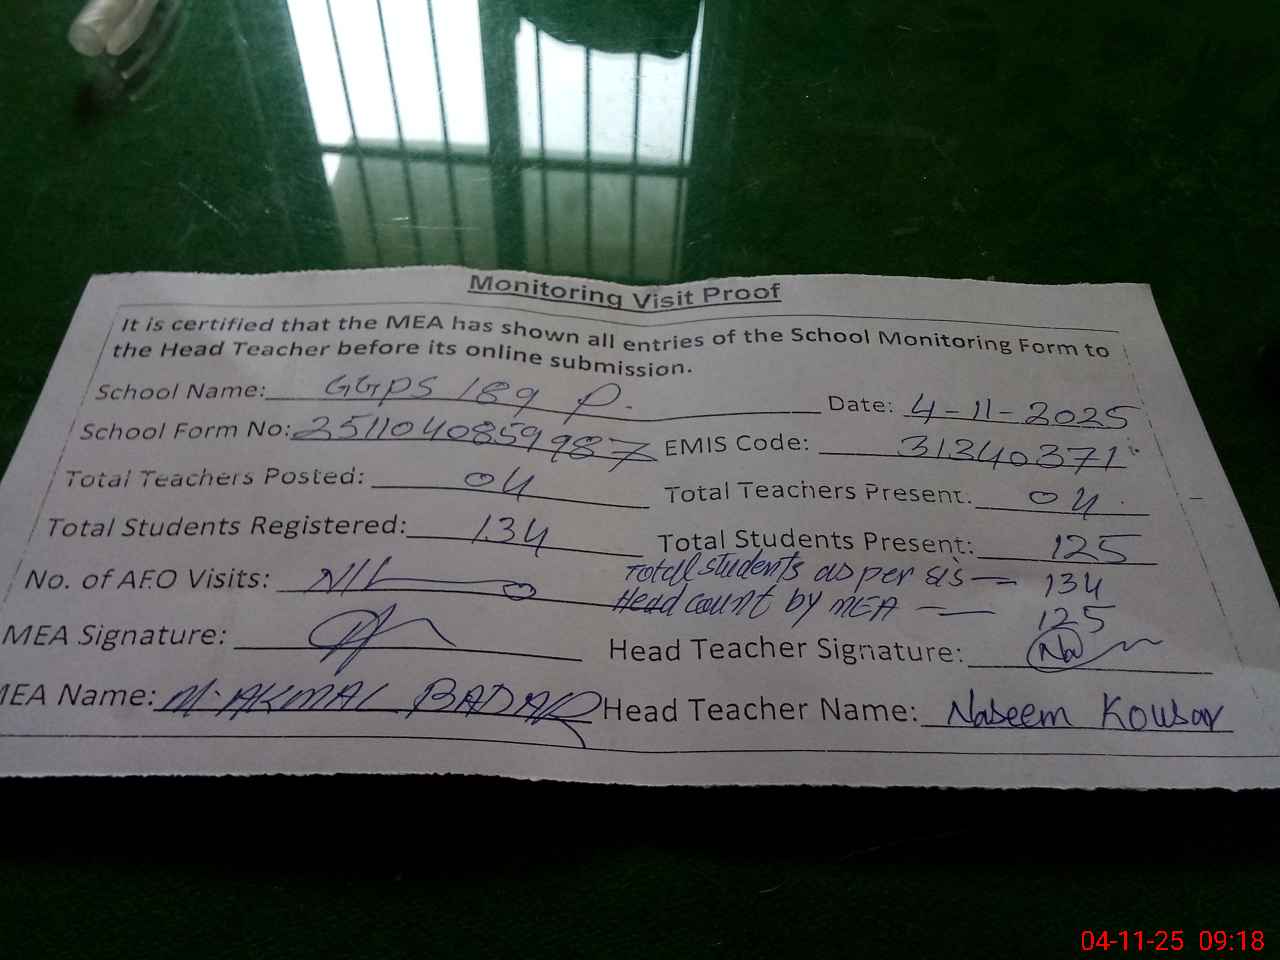 Monitoring Visit Proof
It is certified that the MEA has shown all entries of the School Monitoring Form to
the Head Teacher before its online submission.
School Name: GGPS 189 P. Date: 4-11-2025
School Form No: 2511040859987 EMIS Code: 31340371
Total Teachers Posted: 04 Total Teachers Present: 04
Total Students Registered: 134 Total Students Present: 125
Total students as per sis — 134
No. of AEO Visits: NIL
Head count by MEA — 125
MEA Signature: Head Teacher Signature:
MEA Name: M. AKMAL BADAR Head Teacher Name: Naseem Kousar
04-11-25 09:18